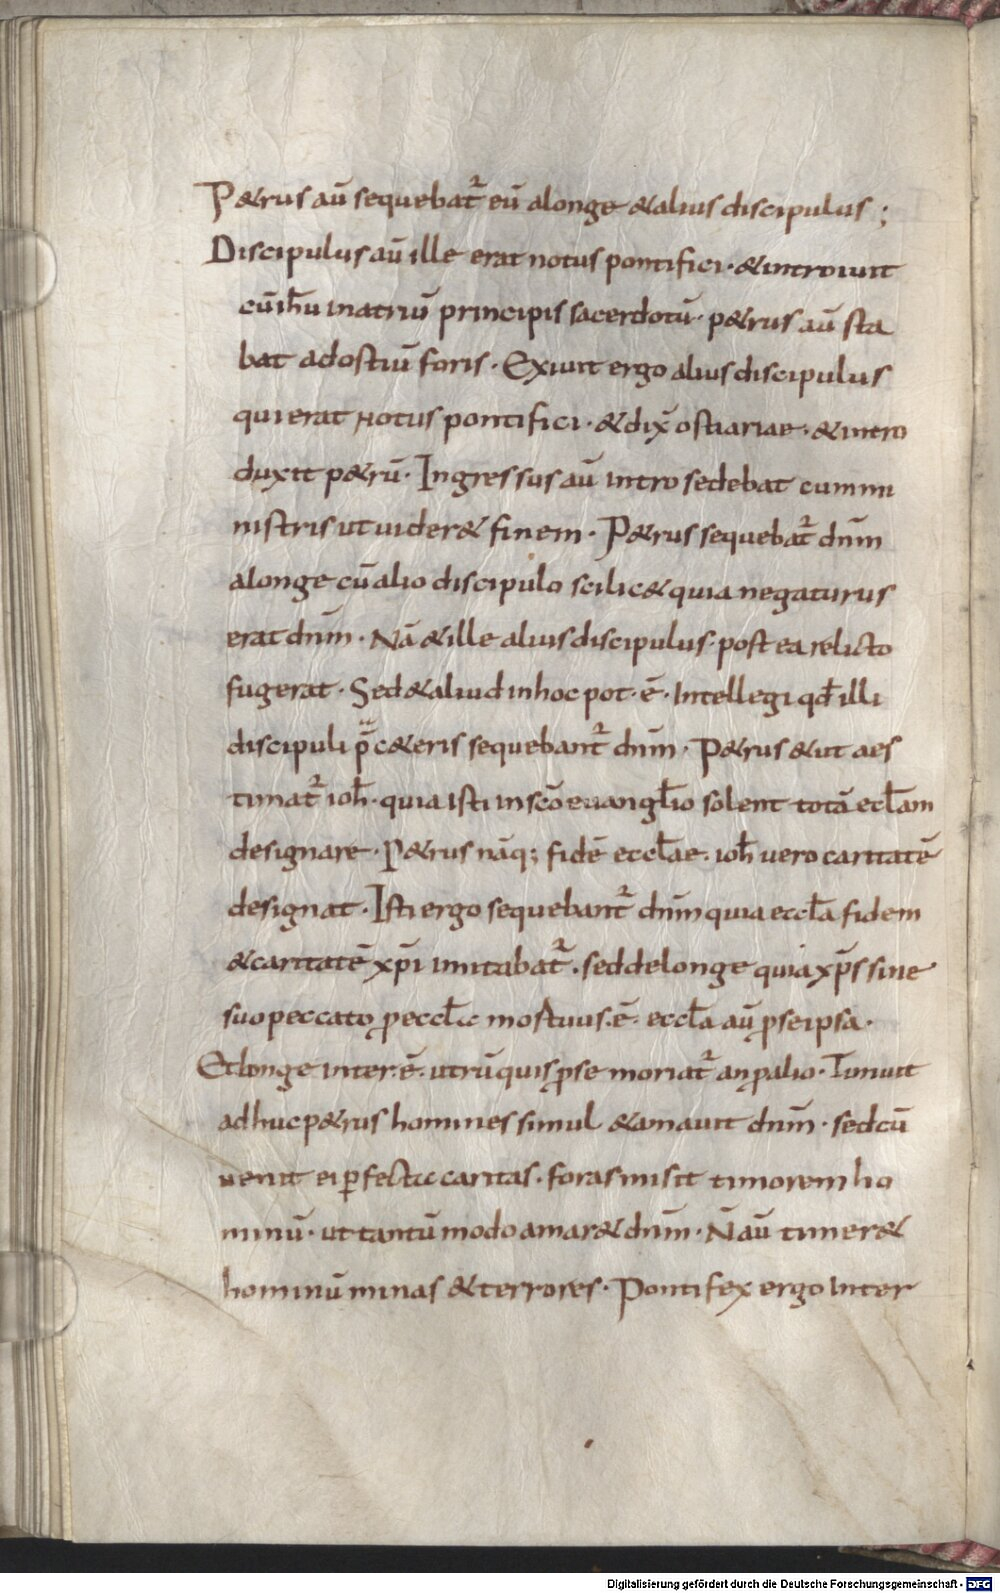 P&rus aū sequebat᷑ eū alonge &alius discipulus;
Discipulus aū ille erat notus pontifici· &introiuit
cūih̅u inatriū principis sacerdotū· p&rus aū sta
bat adostiū foris· Exiuit ergo alius discipulus
qui erat Notus pontifici· &dix̅ ostiariae· &intro
duxit p&rū· Ingressus aū intro sedebat cummi
nistris ut uider& finem· P&rus sequebat᷑ dn̅m
alonge cū alio discipulo scilic& quia negaturus
erat dn̅m· Nā &ille alius discipulus· post ea relicto
fugerat· Sed &aliud inhoc pot· ē· Intellegi qd̅ illi
discipuli p̅ c&eris sequebant᷑ dn̅m· P&rus &ut aes
timat᷑ ioh̅· quia isti in sc̅o euangl̅io solent totā eccl̅am
designare· P&rus nāq; fidē eccl̅ae· ioh̅ uero caritatē
designat· Isti ergo sequebant᷑ dn̅m quia eccl̅a fidem
&caritatē xp̅i imitabat᷑· sed delonge quia xp̅s sine
suo peccato ꝓ eccl̅a mortuus· ē· eccl̅a aū ꝓ se ipsa·
Et longe inter· ē· utrū quis ꝓ se moriat᷑ an ꝓ alio· Timuit
adhuc p&rus homines simul &amauit dn̅m· sed cū
uenit ei ꝑfecta caritas· foras misit timorem ho
minū· ut tantū modo amar& dn̅m· N̅ aū timer&
hominū minas &terrores· Pontifex ergo inter
Digitalisierung gefördert durch die Deutsche Forschungsgemeinschaft - DFG